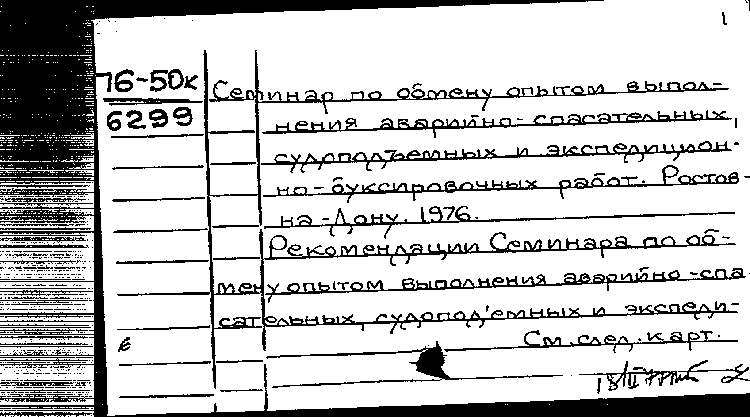 1
76-50к
6299
Семинар по обмену опытом выпол-
нения аварийно-спасательных,
судоподъемных и экспедицион-
но-буксировочных работ. Ростов-
на-Дону. 1976.
Рекомендации Семинара по об-
мену опытом выполнения аварийно-спа-
сательных, судопод'емных и экспеди-
См. след. карт.
в